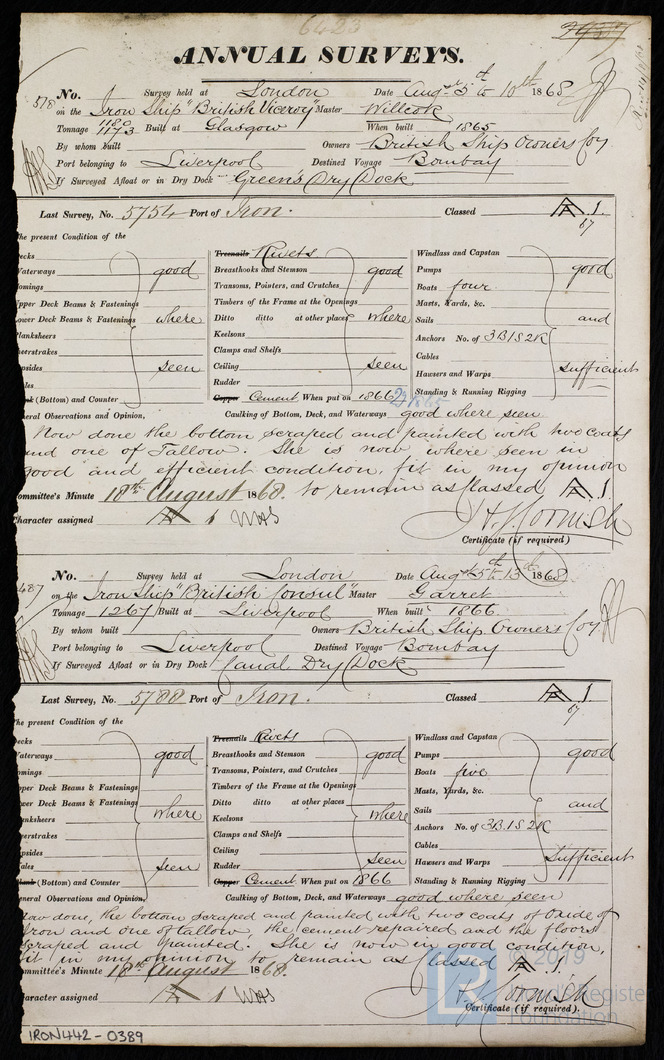 6423
ANNUAL SURVEYS.
578 No. Survey held at London Date Augst 5th to 10th 1868
on the Iron Ship "British Viceroy" Master Willcok
Tonnage 1180 1173 Built at Glasgow When built 1865
By whom built Owners British Ship Owners Coy
Port belonging to Liverpool Destined Voyage Bombay
If Surveyed Afloat or in Dry Dock Green's Dry Dock
Last Survey, No. 5754 Port of Iron. Classed A 1. 67
The present Condition of the
Decks Treenails Rivets Windlass and Capstan
Waterways good Breasthooks and Stemson good Pumps good
Comings Transoms, Pointers, and Crutches Boats four
Upper Deck Beams & Fastenings Timbers of the Frame at the Openings Masts, Yards, &c.
Lower Deck Beams & Fastenings where Ditto ditto at other places where Sails and
Planksheers Keelsons Anchors No. of 3B 1S 2K
Sheerstrakes Clamps and Shelfs Cables
Topsides seen Ceiling seen Hawsers and Warps sufficient
Wales Rudder Standing & Running Rigging
Plank (Bottom) and Counter Copper Cement When put on 1866
General Observations and Opinion, Caulking of Bottom, Deck, and Waterways good where seen
Now done the bottom scraped and painted with two coats
and one of Tallow. She is now where seen in
good and efficient condition, fit in my opinion
Committee's Minute 18th August 1868. to remain as Classed A 1.
Character assigned A 1 J. H. J. Cornish
Certificate (if required)
487 No. Survey held at London Date Augst 5th 13th 1868
on the Iron Ship "British Consul" Master Garret
Tonnage 1267 Built at Liverpool When built 1866
By whom built Owners British Ship Owners Coy
Port belonging to Liverpool Destined Voyage Bombay
If Surveyed Afloat or in Dry Dock Canal Dry Dock
Last Survey, No. 5788 Port of Iron. Classed A 1. 67
The present Condition of the
Decks Treenails Rivets Windlass and Capstan
Waterways good Breasthooks and Stemson good Pumps good
Comings Transoms, Pointers, and Crutches Boats five
Upper Deck Beams & Fastenings Timbers of the Frame at the Openings Masts, Yards, &c.
Lower Deck Beams & Fastenings Ditto ditto at other places Sails and
Planksheers where Keelsons where Anchors No. of 3B. 1S 2K
Sheerstrakes Clamps and Shelfs Cables
Topsides Ceiling Hawsers and Warps sufficient
Wales seen Rudder seen Standing & Running Rigging
Plank (Bottom) and Counter Copper Cement When put on 1866
General Observations and Opinion, Caulking of Bottom, Deck, and Waterways good where seen
Now done, the bottom scraped and painted with two coats of Oxide of
Iron and one of tallow, the cement repaired and the floors
scraped and painted. She is now in good condition,
fit in my opinion to remain as Classed A 1.
Committee's Minute 18th August 1868.
Character assigned A 1 J. H. J. Cornish
Certificate (if required).
© 2019
Lloyd's Register
Foundation
IRON442-0389